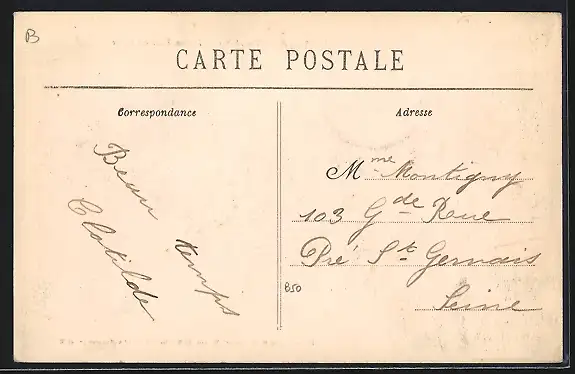 B
CARTE POSTALE
Correspondance
Adresse
Beau temps
Clotilde
Mme Montigny
103 Gde Rue
Pré St Gervais
Seine
B50